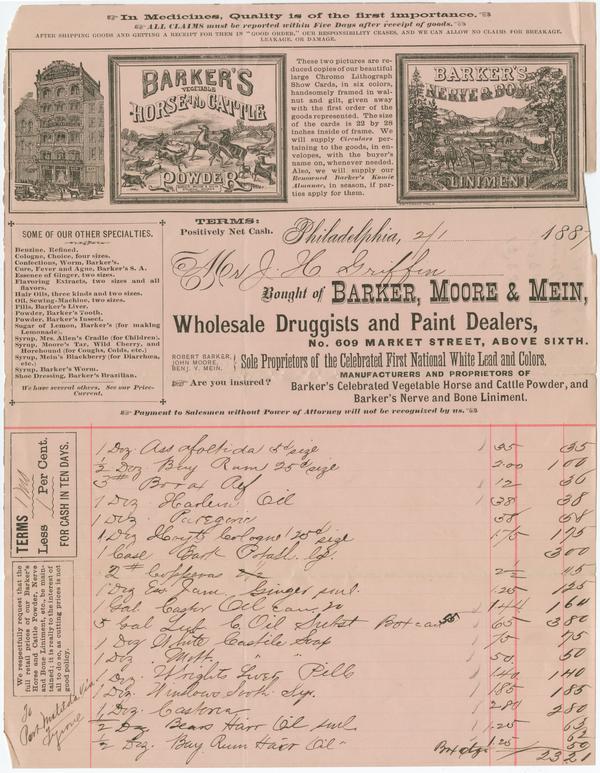 In Medicines, Quality is of the first importance.
ALL CLAIMS must be reported within Five Days after receipt of goods.
AFTER SHIPPING GOODS AND GETTING A RECEIPT FOR THEM IN "GOOD ORDER," OUR RESPONSIBILITY CEASES, AND WE CAN ALLOW NO CLAIMS FOR BREAKAGE,
LEAKAGE, OR DAMAGE.
BARKER'S
VEGETABLE
HORSE AND CATTLE
POWDER
These two pictures are re-
duced copies of our beautiful
large Chromo Lithograph
Show Cards, in six colors,
handsomely framed in wal-
nut and gilt, given away
with the first order of the
goods represented. The size
of the cards is 22 by 28
inches inside of frame. We
will supply Circulars per-
taining to the goods, in en-
velopes, with the buyer's
name on, whenever needed.
Also, we will supply our
Renowned Barker's Komic
Almanac, in season, if par-
ties apply for them.
BARKER'S
NERVE & BONE
LINIMENT
SOME OF OUR OTHER SPECIALTIES.
Benzine, Refined.
Cologne, Choice, four sizes.
Confections, Worm, Barker's.
Cure, Fever and Ague, Barker's S. A.
Essence of Ginger, two sizes.
Flavoring Extracts, two sizes and all
flavors.
Hair Oils, three kinds and two sizes.
Oil, Sewing-Machine, two sizes.
Pills, Barker's Liver.
Powder, Barker's Tooth.
Powder, Barker's Insect.
Sugar of Lemon, Barker's (for making
Lemonade).
Syrup, Mrs. Allen's Cradle (for Children).
Syrup, Moore's Tar, Wild Cherry, and
Horehound (for Coughs, Colds, etc.)
Syrup, Mein's Blackberry (for Diarrhœa,
etc.)
Syrup, Barker's Worm.
Shoe Dressing, Barker's Brazilian.
We have several others. See our Price-
Current.
TERMS:
Positively Net Cash.
Philadelphia, 2/1 1887
Mr J. H Griffen
Bought of BARKER, MOORE & MEIN,
Wholesale Druggists and Paint Dealers,
No. 609 MARKET STREET, ABOVE SIXTH.
ROBERT BARKER,
JOHN MOORE,
BENJ. V. MEIN.
Sole Proprietors of the Celebrated First National White Lead and Colors,
MANUFACTURERS AND PROPRIETORS OF
Are you insured?
Barker's Celebrated Vegetable Horse and Cattle Powder, and
Barker's Nerve and Bone Liniment.
Payment to Salesmen without Power of Attorney will not be recognized by us.
TERMS
Less Per Cent.
FOR CASH IN TEN DAYS.
We respectfully request that the
full retail prices of our Barker's
Horse and Cattle Powder, Nerve
and Bone Liniment, etc., be main-
tained; it is really to the interest of
all to do so, as cutting prices is not
good policy.
To
Port Matilda Via
Tyrone
1 Doz Assafoetida 5d size 35 35
½ Doz. Bay Rum 25d size 2.00 100
3# Borax 12 36
1 Doz Harlem Oil 38 38
1 Doz. Paregoric 58 58
1 Doz Hoyts Cologne 25d size 175 175
1 Case Bart Potash 300
2# Copperas 2½
1 Doz Ess Jam Ginger sml. 1.25 125
1 Gal Castor Oil can 20 144 164
5 Gal C Oil 65 380
1 Doz White Castile Soap 75 75
1 Doz Moth " " 50 50
1 Doz Wrights Liver Pills 140 140
1 Doz. Winslows Sooth Sy. 185 185
1 Doz. Castoria 280 280
½ Doz Bears Hair Oil sml 1.25 63
½ Doz. Bay Rum Hair Oil " 1.25 62
50
2321